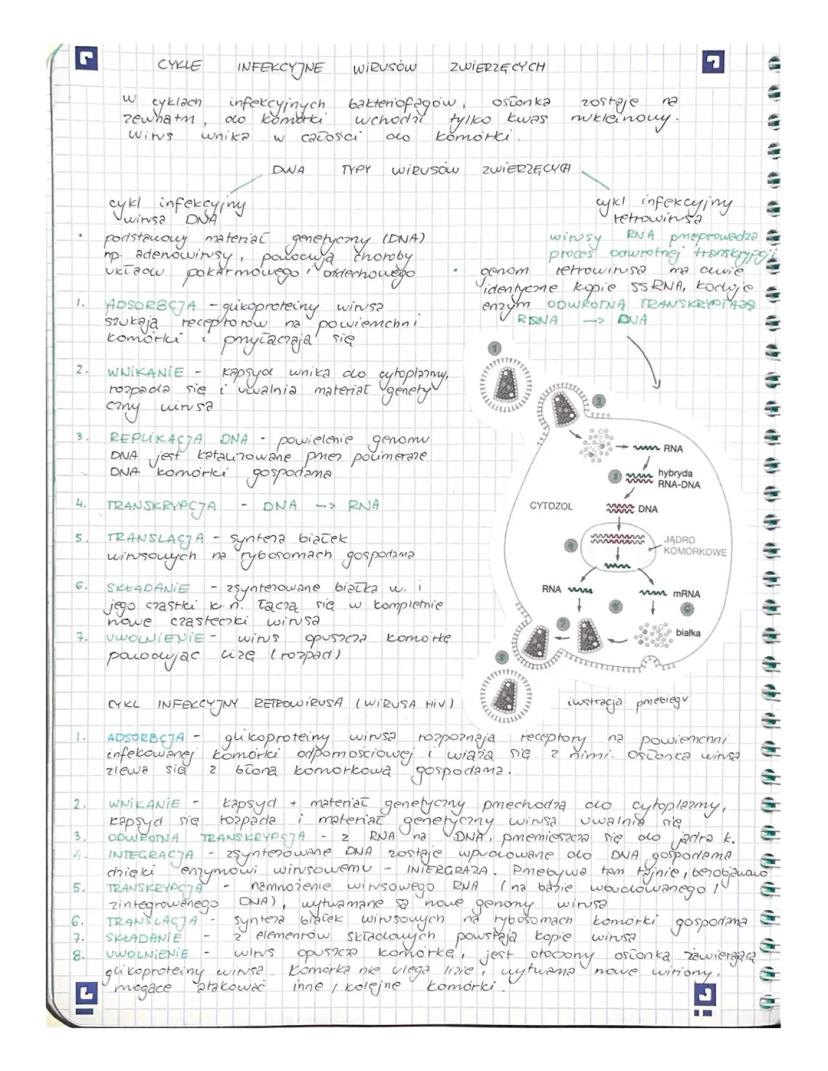 CYKLE INFEKCYJNE WIRUSÓW ZWIERZĘCYCH
w cyklach infekcyjnych bakteriofagów, osłonka zostaje na
zewnątrz, do komórki wchodzi tylko kwas nukleinowy.
Wirus wnika w całości do komórki.
DWA TYPY WIRUSÓW ZWIERZĘCYCH
cykl infekcyjny
wirusa DNA
podstawowy materiał genetyczny (DNA)
np. adenowirusy, powodują choroby
układów pokarmowego i oddechowego
1. ADSORBCJA - glikoproteiny wirusa
szukają receptorów na powierzchni
komórki i przyłączają się
2. WNIKANIE - kapsyd wnika do cytoplazmy,
rozpada się i uwalnia materiał genety
czny wirusa
3. REPLIKACJA DNA - powielenie genomu
DNA jest katalizowane przez polimerazę
DNA komórki gospodarza
4. TRANSKRYPCJA - DNA --> RNA
5. TRANSLACJA - synteza białek
wirusowych na rybosomach gospodarza
6. SKŁADANIE - zsyntezowane białka w. i
jego cząstki k.n. łączą się w kompletnie
nowe cząsteczki wirusa
7. UWOLNIENIE - wirus opuszcza komórkę
powodując lizę (rozpad)
cykl infekcyjny
retrowirusa
wirusy RNA przeprowadza
proces odwrotnej transkrypcji
genom retrowirusa ma dwie
identyczne kopie ssRNA, koduje
enzym ODWROTNĄ TRANSKRYPTAZĘ
RNA --> DNA
1
2
RNA
3
hybryda
RNA-DNA
CYTOZOL
DNA
4
JĄDRO
KOMÓRKOWE
RNA
mRNA
5
6
7
białka
8
ilustracja przebiegu
CYKL INFEKCYJNY RETROWIRUSA (WIRUSA HIV)
1. ADSORBCJA - glikoproteiny wirusa rozpoznają receptory na powierzchni
infekowanej komórki odpornościowej i wiążą się z nimi. Osłonka wirusa
zlewa się z błoną komórkową gospodarza.
2. WNIKANIE - kapsyd + materiał genetyczny przechodzą do cytoplazmy,
kapsyd się rozpada i materiał genetyczny wirusa uwalnia się
3. ODWROTNA TRANSKRYPCJA - z RNA na DNA, przemieszcza się do jądra k.
4. INTEGRACJA - zsyntezowane DNA zostaje wprowadzone do DNA gospodarza
dzięki enzymowi wirusowemu - INTERGRAZA. Przebywa tam tajnie, bezobjawowo
5. TRANSKRYPCJA - namnożenie wirusowego RNA (na bazie wbudowanego /
zintegrowanego DNA), wytwarzane są nowe genomy wirusa
6. TRANSLACJA - synteza białek wirusowych na rybosomach komórki gospodarza
7. SKŁADANIE - z elementów składowych powstają kopie wirusa
8. UWOLNIENIE - wirus opuszcza komórkę, jest otoczony osłonką zawierającą
glikoproteiny wirusa. Komórka nie ulega lizie, wytwarza nowe wiriony,
mogące atakować inne / kolejne komórki.